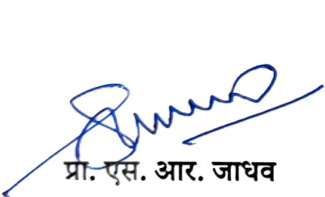 प्रा. एस. आर. जाधव